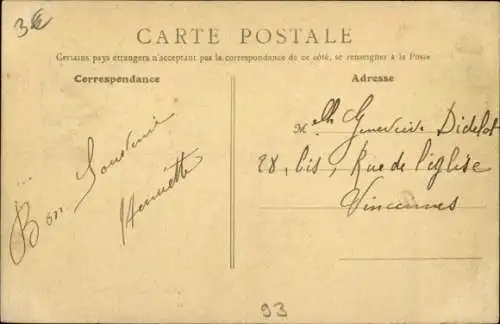 3€
CARTE POSTALE
Certains pays étrangers n'acceptant pas la correspondance de ce côté, se renseigner à la Poste
Correspondance
Bon Souvenir
Henriette
Adresse
Melle Geneviève Didelot
28, bis, Rue de l'église
Vincennes
93